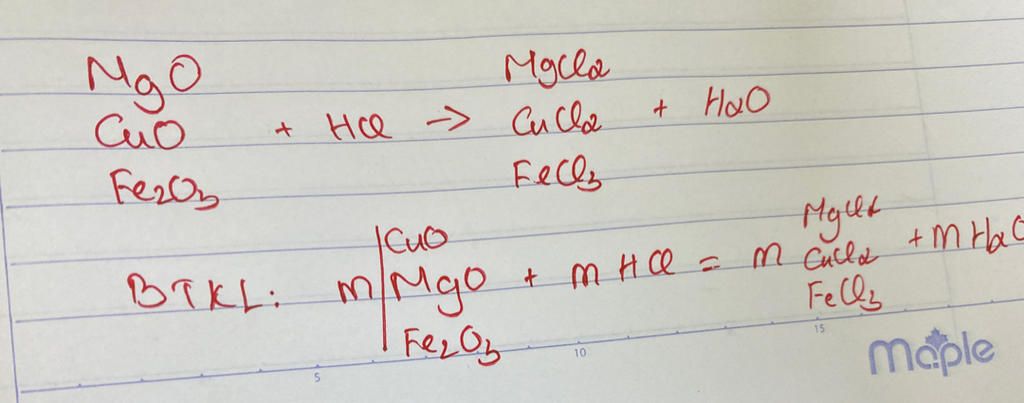 MgO
CuO
Fe2O3
+ HCl →
MgCl2
CuCl2
FeCl3
+ H2O
BTKL: m
CuO
MgO
Fe2O3
+ m HCl = m
MgCl2
CuCl2
FeCl3
+ m H2O
5
10
15
maple